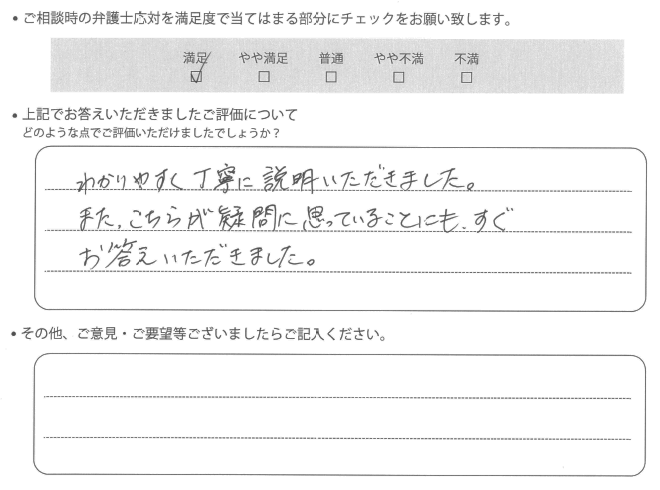 • ご相談時の弁護士応対を満足度で当てはまる部分にチェックをお願い致します。
満足 やや満足 普通 やや不満 不満
☑ □ □ □ □
• 上記でお答えいただきましたご評価について
どのような点でご評価いただけましたでしょうか？
わかりやすく丁寧に説明いただきました。
また、こちらが疑問に思っていることにも、すぐ
お答えいただきました。
• その他、ご意見・ご要望等ございましたらご記入ください。